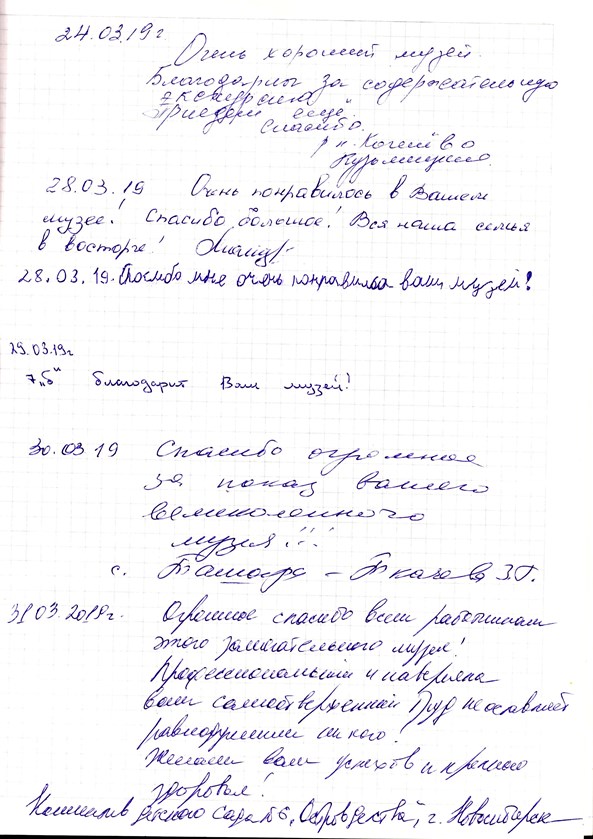 24.03.19 г.
Очень хороший музей.
Благодарны за содержательную
экскурсию
Приедем еще.
Спасибо.
р.п. Коченёво
28.03.19 Очень понравилось в Вашем
музее! Спасибо большое! Вся наша семья
в восторге!
28.03.19. Спасибо мне очень понравилса ваш музей!
29.03.19г
7 „б" благодарит Ваш музей!
30.03 19 Спасибо огромное
за показ вашего
великолепного
музея!!!
с. – Ткачева З.Г.
31.03.2019г. Огромное спасибо всем работникам
этого замечательного музея!
Профессионализм и наверняка
ваш самоотверженный труд не оставляет
равнодушными никого!
Желаем вам успехов и крепкого
здоровья!
Коллектив детского сада №6 „Островок детства", г. Новосибирск